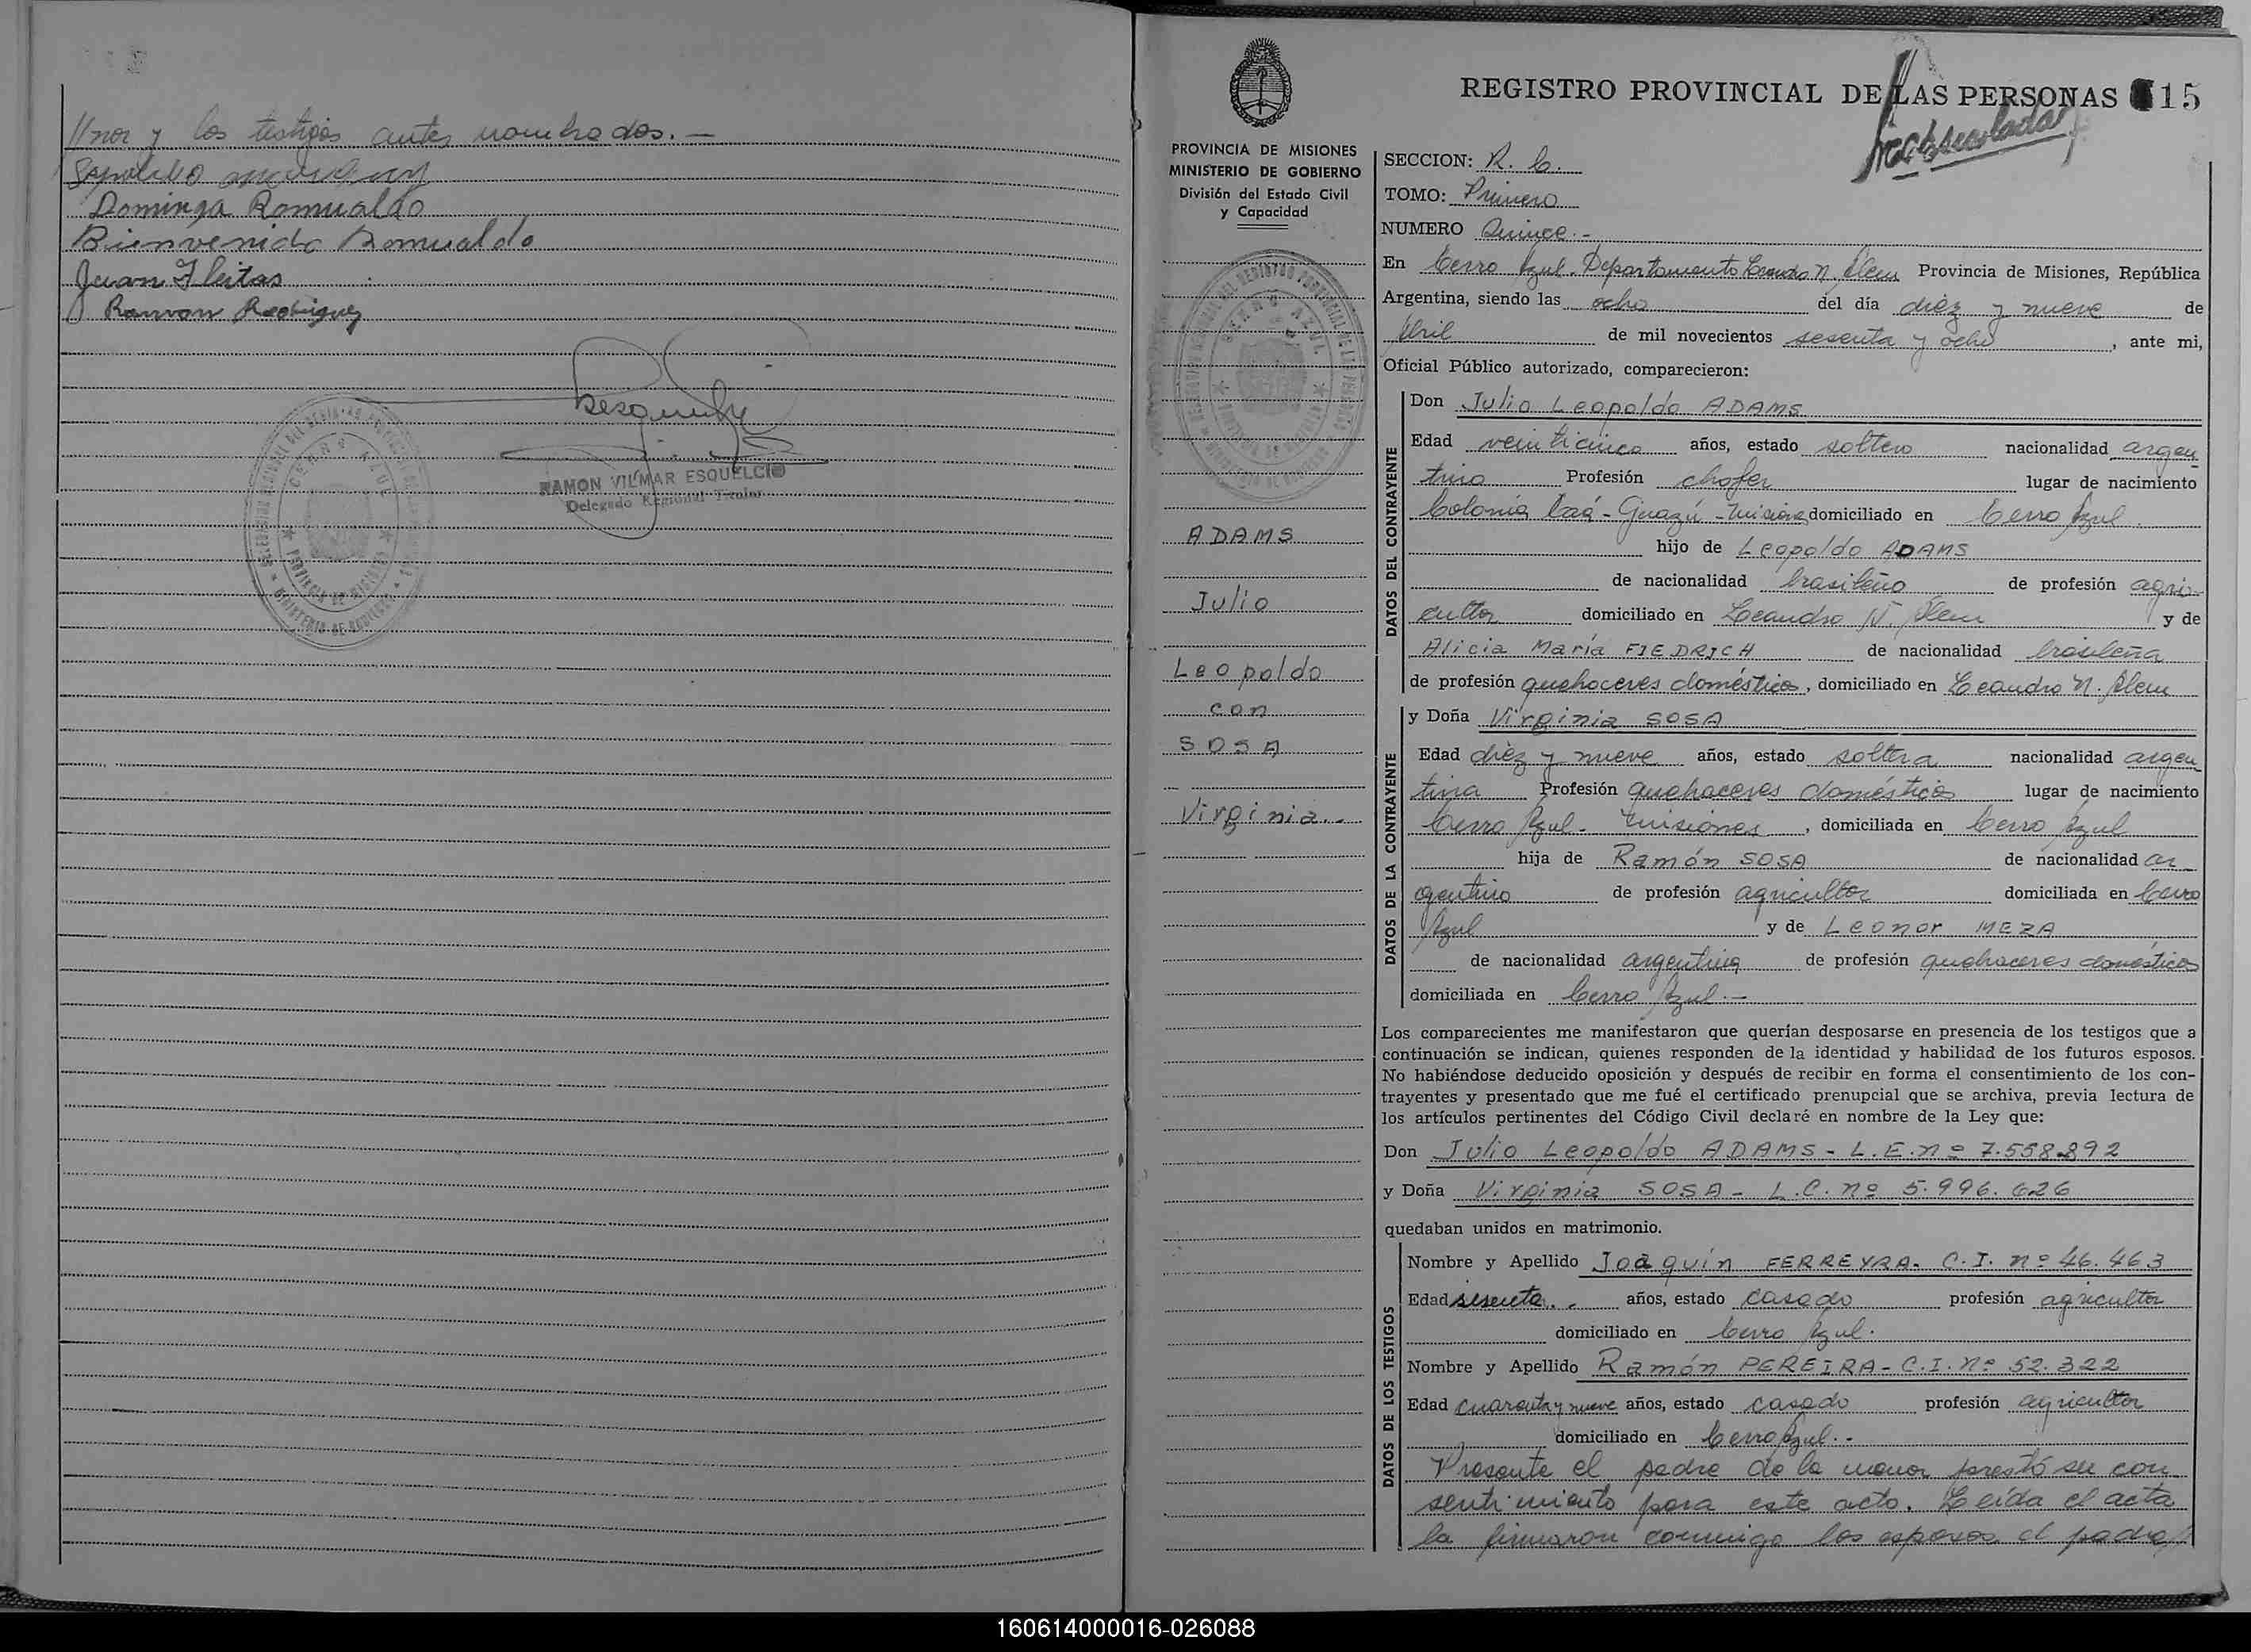 //nor y los testigos antes nombrados.—
Dominga Romualdo
Bienvenido Romualdo
Juan Fleitas
Ramon Rodriguez
RAMON VILMAR ESQUELCIO
Delegado Regional Titular
CERRO AZUL
PROVINCIA DE MISIONES
REGISTRO PROVINCIAL DE LAS PERSONAS 15
PROVINCIA DE MISIONES
MINISTERIO DE GOBIERNO
División del Estado Civil
y Capacidad
ADAMS
Julio
Leopoldo
con
SOSA
Virginia.-
SECCION: R. C.
TOMO: Primero
NUMERO Quince.-
En Cerro Azul. Departamento Leandro N. Alem Provincia de Misiones, República
Argentina, siendo las ocho del día diez y nueve de
Abril de mil novecientos sesenta y ocho, ante mi,
Oficial Público autorizado, comparecieron:
DATOS DEL CONTRAYENTE
Don Julio Leopoldo ADAMS
Edad veinticinco años, estado soltero nacionalidad argen
tino Profesión chofer lugar de nacimiento
Colonia Caá-Guazú-Misiones domiciliado en Cerro Azul
hijo de Leopoldo ADAMS
de nacionalidad brasileño de profesión agri-
cultor domiciliado en Leandro N. Alem y de
Alicia María FIEDRICH de nacionalidad brasileña
de profesión quehaceres domésticos, domiciliado en Leandro N. Alem
DATOS DE LA CONTRAYENTE
y Doña Virginia SOSA
Edad diez y nueve años, estado soltera nacionalidad argen
tina Profesión quehaceres domésticos lugar de nacimiento
Cerro Azul - Misiones, domiciliada en Cerro Azul
hija de Ramón SOSA de nacionalidad ar_
gentino de profesión agricultor domiciliada en Cerro
Azul y de Leonor MEZA
de nacionalidad argentina de profesión quehaceres domésticos
domiciliada en Cerro Azul.-
Los comparecientes me manifestaron que querían desposarse en presencia de los testigos que a
continuación se indican, quienes responden de la identidad y habilidad de los futuros esposos.
No habiéndose deducido oposición y después de recibir en forma el consentimiento de los con-
trayentes y presentado que me fué el certificado prenupcial que se archiva, previa lectura de
los artículos pertinentes del Código Civil declaré en nombre de la Ley que:
Don Julio Leopoldo ADAMS - L.E. nº 7.558.892
y Doña Virginia SOSA - L.C. nº 5.996.626
quedaban unidos en matrimonio.
DATOS DE LOS TESTIGOS
Nombre y Apellido Joaquín FERREYRA - C.I. nº 46.463
Edad sesenta.- años, estado casado profesión agricultor
domiciliado en Cerro Azul.
Nombre y Apellido Ramón PEREIRA - C.I. nº 52.322
Edad cuarenta y nueve años, estado casado profesión agricultor
domiciliado en Cerro Azul.-
Presente el padre de la menor prestó su con
sentimiento para este acto. Leída el acta
la firmaron conmigo los esposos el padre//
160614000016-026088